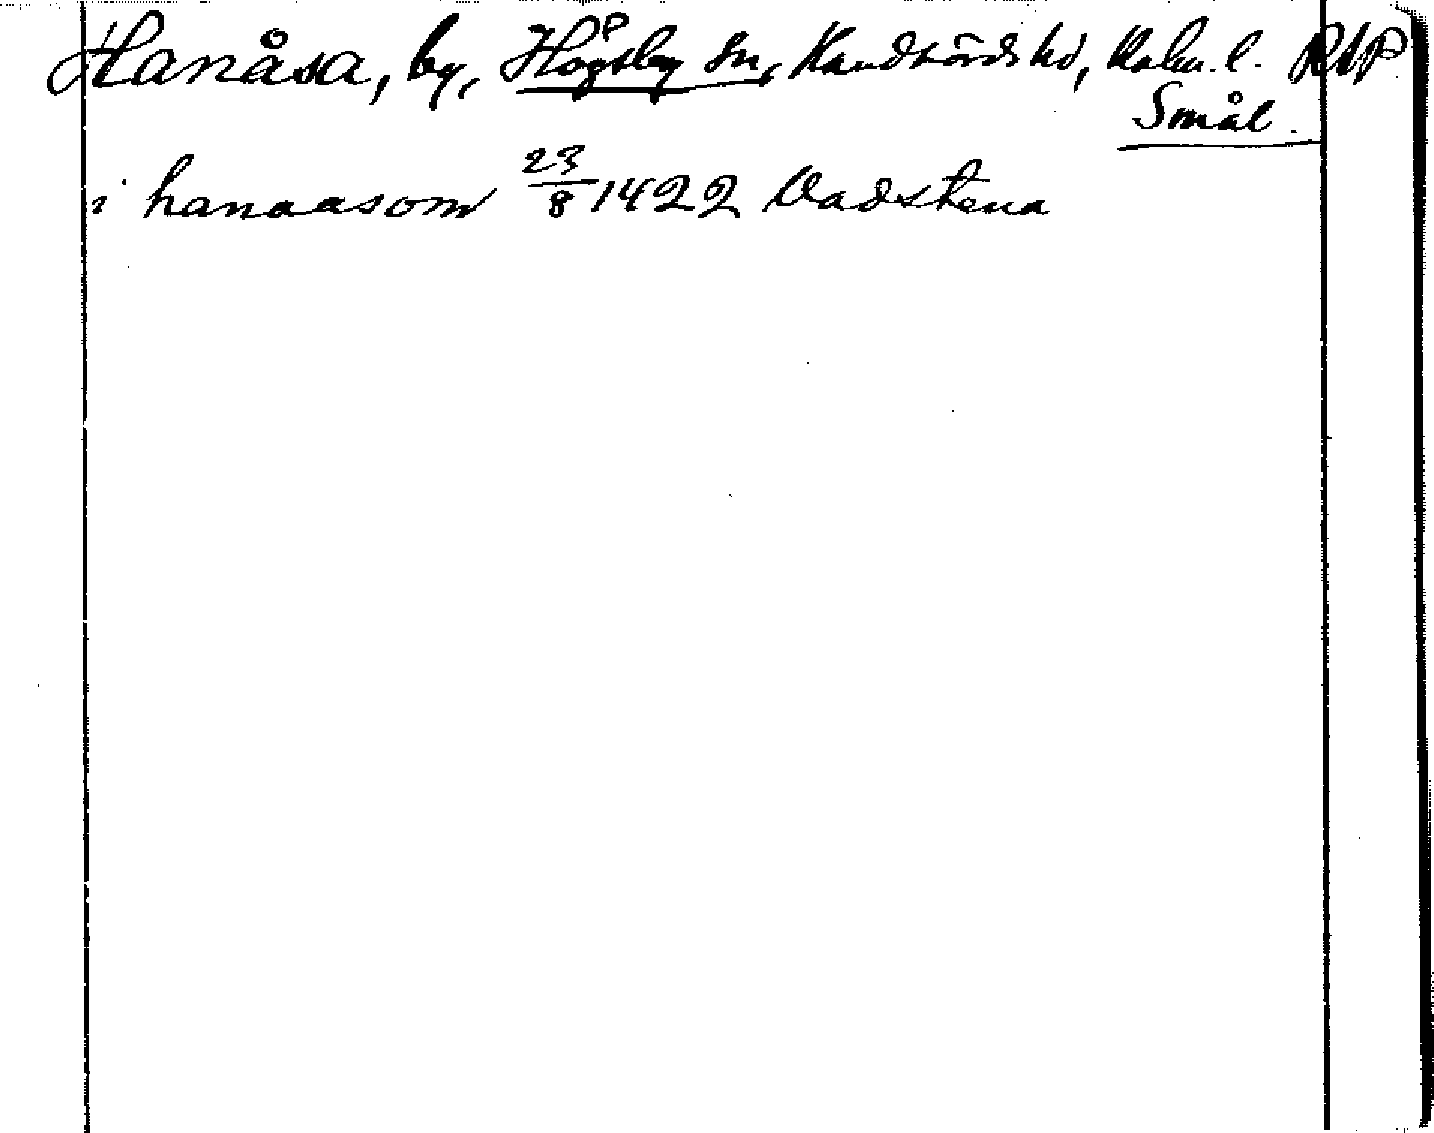 Hanåsa, by, Högsby sn, Handbörds hd, Kalm. l. RAP
Smål.
i hanaasom 23/8 1422 Vadstena